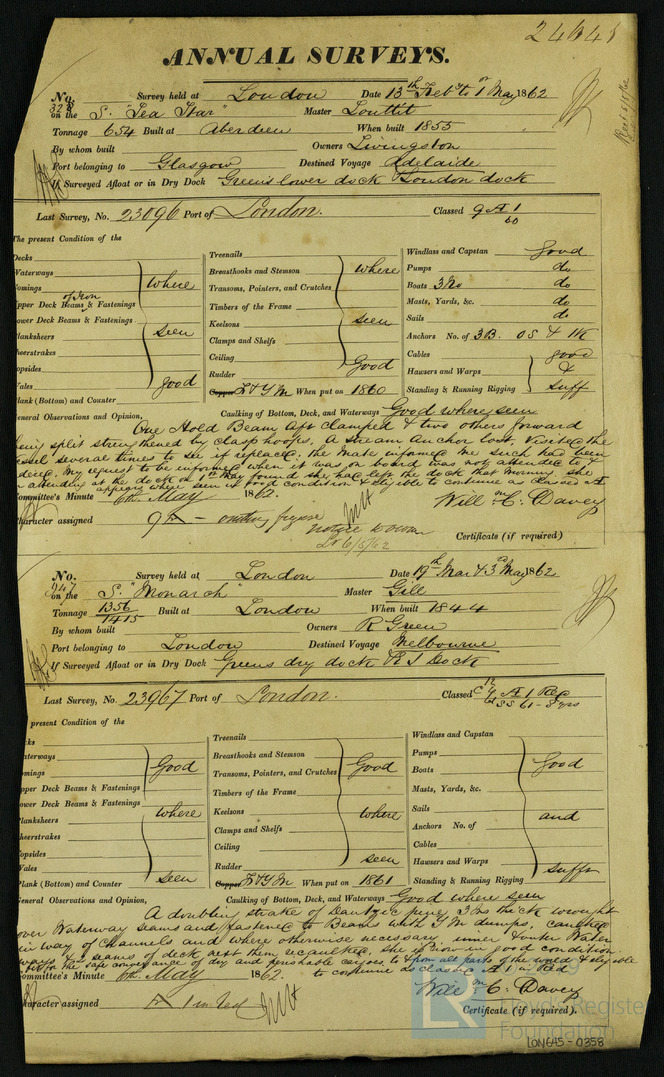 24645
ANNUAL SURVEYS.
No. 328 Survey held at London Date 13th Feby to 1st May 1862
on the S. "Sea Star" Master Louttit
Tonnage 654 Built at Aberdeen When built 1855
By whom built Owners Livingston
Port belonging to Glasgow Destined Voyage Adelaide
If Surveyed Afloat or in Dry Dock Greens lower dock London dock
Last Survey, No. 23096 Port of London. Classed 9 A 1
60
The present Condition of the
Decks Treenails Windlass and Capstan good
Waterways Breasthooks and Stemson where Pumps do
Comings where Transoms, Pointers, and Crutches Boats 3 No do
of Iron
Upper Deck Beams & Fastenings Timbers of the Frame Masts, Yards, &c. do
Lower Deck Beams & Fastenings Keelsons seen Sails do
Planksheers seen Clamps and Shelfs Anchors No. of 3B. 0S & 1K
Sheerstrakes Ceiling Cables good
Topsides Rudder Good Hawsers and Warps &
Wales good Copper F & Y M When put on 1860 Standing & Running Rigging suff
Plank (Bottom) and Counter Caulking of Bottom, Deck, and Waterways Good where seen
General Observations and Opinion,
One Hold Beam Aft clamped & two others forward
being split strengthened by clasp hoops. A stream Anchor lost. Visited the
vessel several times to see if replaced; the mate informed me such had been
my request to be informed when it was on board was not attended to &
attending at the dock on 1st May found she had left the dock that morning she
appears where seen in good condition & eligible to continue as classed A
Committee's Minute 6th May 1862. Willm C. Davey
Character assigned 9 A
Lr 6/5/62 Certificate (if required)
No. 947 Survey held at London Date 19th Mar & 3rd May 1862
on the S. "Monarch" Master Gill
Tonnage 1356 Built at London When built 1844
1415
By whom built Owners R Green
Port belonging to London Destined Voyage Melbourne
If Surveyed Afloat or in Dry Dock Greens dry dock & I Dock
Last Survey, No. 23967 Port of London. Classed 12 A 1 Red
SS 61 - 8 yrs
present Condition of the
Decks Treenails Windlass and Capstan
Waterways Breasthooks and Stemson Pumps
Comings Good Transoms, Pointers, and Crutches Good Boats good
Upper Deck Beams & Fastenings Timbers of the Frame Masts, Yards, &c.
Lower Deck Beams & Fastenings Keelsons where Sails and
Planksheers where Clamps and Shelfs Anchors No. of
Sheerstrakes Ceiling Cables
Topsides Rudder seen Hawsers and Warps
Wales Copper F & Y M When put on 1861 Standing & Running Rigging sufft
Plank (Bottom) and Counter seen Caulking of Bottom, Deck, and Waterways Good where seen
General Observations and Opinion,
A doubling strake of Dantzic pine 3 Ins thick wrought
over Waterway seams and fastened to Beams with Y M dumps, caulked
in way of Channels and where otherwise necessary inner & outer Water
ways & seams of deck next them recaulked, she is now in good condition
& fit for the safe conveyance of dry and perishable cargoes to & from all parts of the world & eligible
to continue as classed A 1 Red
Committee's Minute 6th May 1862. Willm C. Davey
Character assigned A 1 in Red
Certificate (if required).
Lloyd's Register
Foundation
LON645-0358